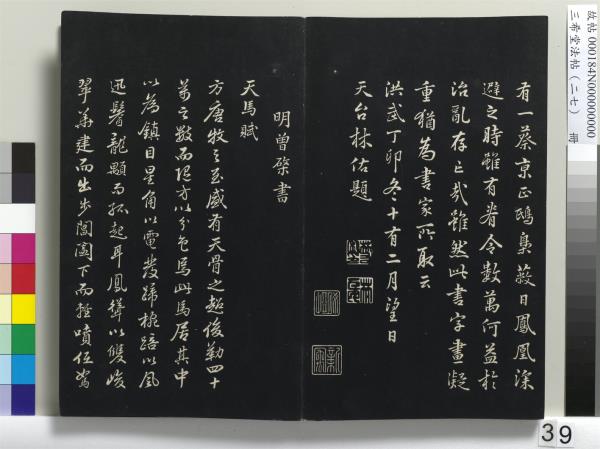 有一蔡京正鴟集蔽日鳳凰深
避之時雖有者令數萬何益於
治亂存亡哉雖然此書字畫凝
重猶為書家所取云
洪武丁卯冬十有二月望日
天台林佑題
明曾棨書
天馬賦
方唐牧之至盛有天骨之超俊勒四十
萬之數而隨方以分色焉此馬居其中
以為鎮目星角以電發蹄椀踣以風
迅鬐龍顒而孤起耳鳳聳以雙峻
翠華建而出步閶闔下而輕噴低駑
故帖 000184N000000000
三希堂法帖(二七) 冊
39